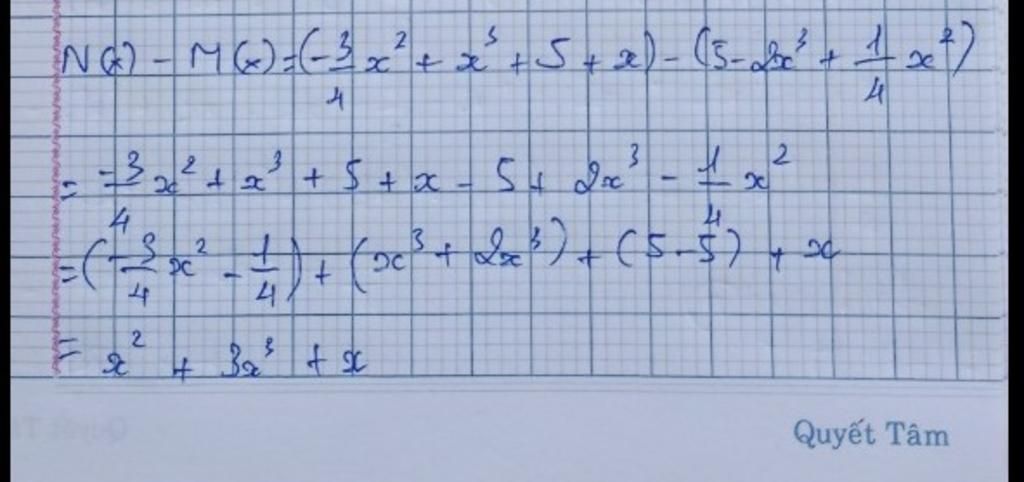 N(x) - M(x) = (-3/4 x² + x³ + 5 + x) - (5 - 2x³ + 1/4 x²)
= -3/4 x² + x³ + 5 + x - 5 + 2x³ - 1/4 x²
= (-3/4 x² - 1/4) + (x³ + 2x³) + (5 - 5) + x
= x² + 3x³ + x
Quyết Tâm